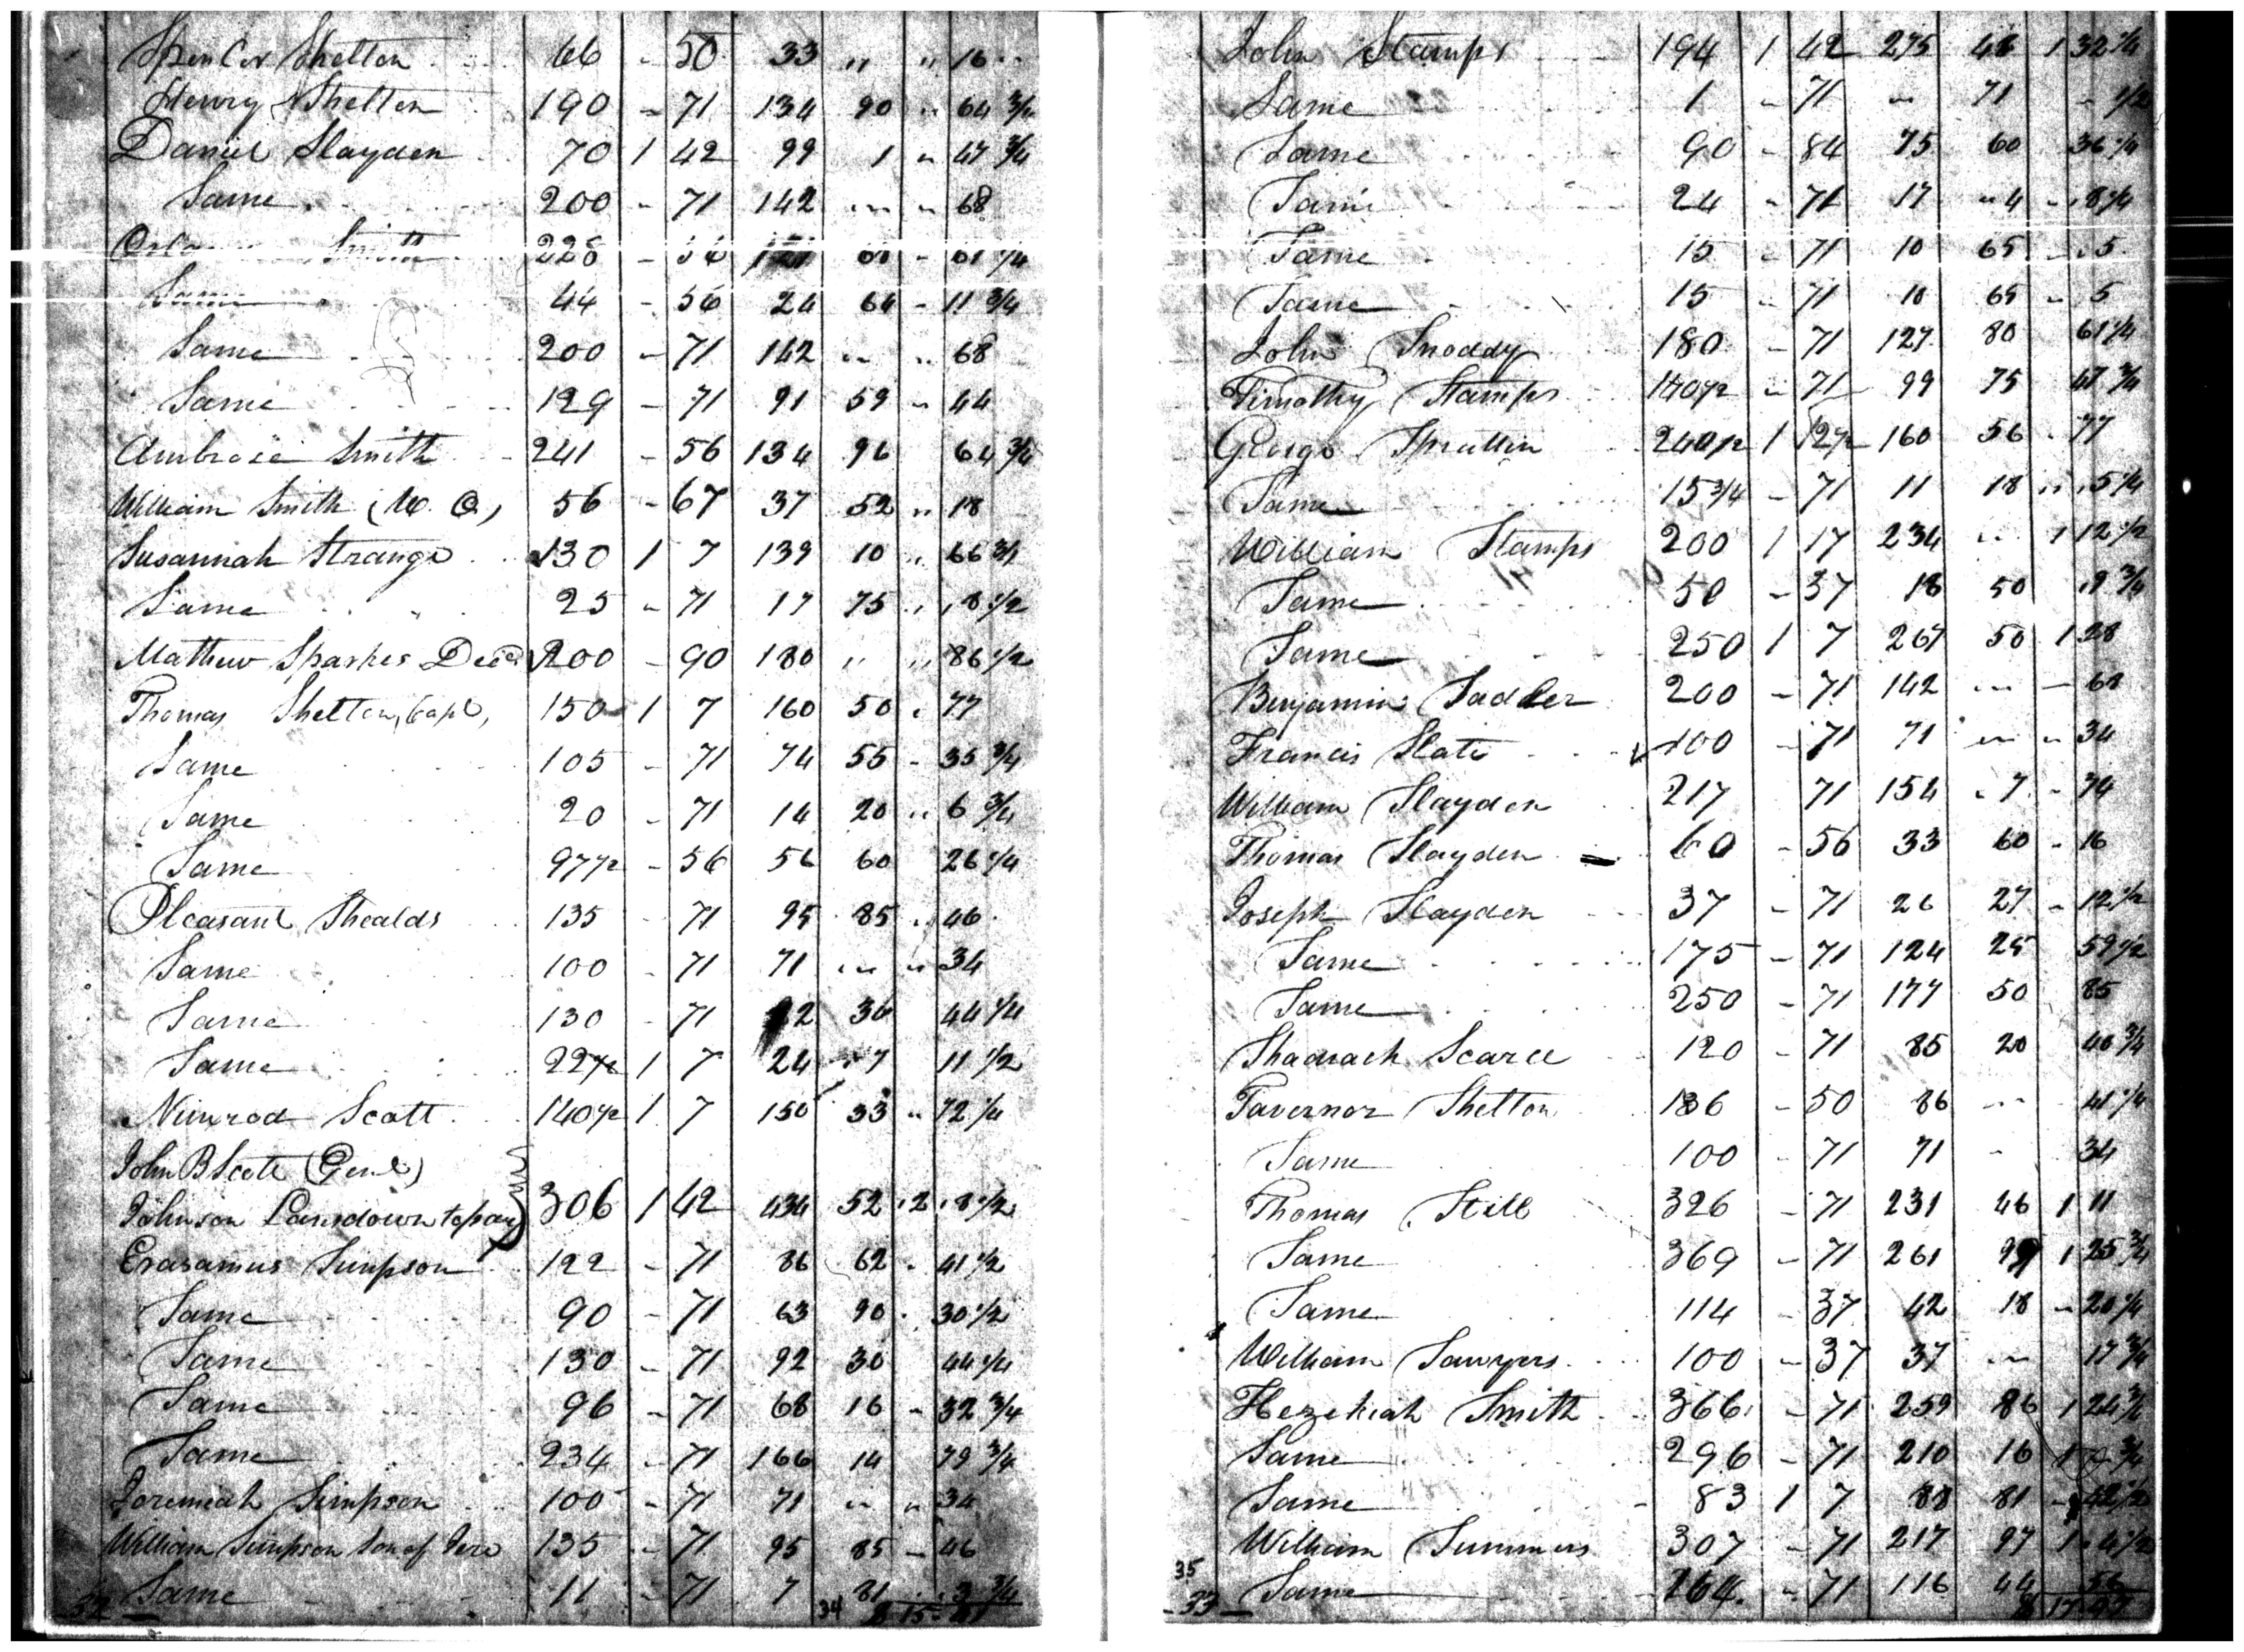 Spencer Shelton 66 - 50 33 " " 16
Henry Shelton 190 - 71 134 90 " 64 3/4
Daniel Slayden 70 1 42 99 1 " 47 3/4
Same 200 - 71 142 " " 68
Smith 228 -
Same 44 - 56 24 64 - 11 3/4
Same 200 - 71 142 " " 68
Same 129 - 71 91 59 " 44
Ambrose Smith 241 - 56 134 96 64 3/4
William Smith 56 - 67 37 52 " 18
Susannah Strange 130 1 7 139 10 " 66 3/4
Same 25 " 71 17 75 " 8 1/2
Mathew Sparkes Decd 200 - 90 180 " " 86 1/2
Thomas Shelton, Capt, 150 1 7 160 50 " 77
Same 105 - 71 74 55 - 35 3/4
Same 20 - 71 14 20 " 6 3/4
Same 97 1/2 - 56 54 60 26 1/4
Pleasant Shealds 135 - 71 95 85 " 46
Same 100 - 71 71 " " 34
Same 130 - 71 92 30 44 1/4
Same 22 1/2 1 7 24 7 11 1/2
Nimrod Scott 140 1/2 1 7 150 33 " 72 1/4
John B Scott (Genl)
Johnson Lansdown to pay 306 1 42 434 52 2 8 1/2
Erasamus Simpson 122 - 71 86 62 - 41 1/2
Same 90 - 71 63 90 30 1/2
Same 130 - 71 92 30 44 1/4
Same 96 - 71 68 16 - 32 3/4
Same 234 - 71 166 14 79 3/4
Joremeah Simpson 100 - 71 71 " " 34
William Simpson son of Jere 135 - 71 95 85 - 46
Same 11 - 71 7 81 3 3/4
34
John Stamps 194 1 42 275 48 1 32 1/4
Same 1 - 71 " 71 - 1/2
Same 90 - 84 75 60 36 1/4
Same 24 - 71 17 " 4 - 8 1/4
Same 15 - 71 10 65 - 5
Same 15 - 71 10 65 - 5
John Snoddy 180 - 71 127 80 61 1/4
Timothy Stamps 140 1/2 - 71 99 75 47 3/4
George Spratlin 240 1/2 1 160 56 - 77
Same 15 3/4 - 71 11 18 " 5 1/4
William Stamps 200 1 17 234 " 1 12 1/2
Same 50 - 37 18 50 9 3/4
Same 250 1 7 267 50 1 28
Benjamin Sadler 200 - 71 142 " - 68
Francis Slate 100 - 71 71 " " 34
William Slayden 217 71 154 - 7 - 74
Thomas Slayden 60 - 56 33 60 - 16
Joseph Slayden 37 - 71 26 27 - 12 1/2
Same 175 - 71 124 25 59 1/2
Same 250 - 71 177 50 85
Shadrach Scarce 120 - 71 85 20 40 3/4
Tavernor Shelton 186 - 50 86 " 41 1/4
Same 100 - 71 71 - 34
Thomas Still 326 - 71 231 46 1 11
Same 369 - 71 261 99 1 25 3/4
Same 114 - 37 42 18 - 20 1/4
William Sawyers 100 - 37 37 " 17 3/4
Hezekiah Smith 366 - 71 259 86 1 24 3/4
Same 296 - 71 210 16
Same 83 1 7 88 81 - 42 1/2
William Summers 307 - 71 217 97 1 4 1/2
35
33 Same 164 - 71 116 44 56